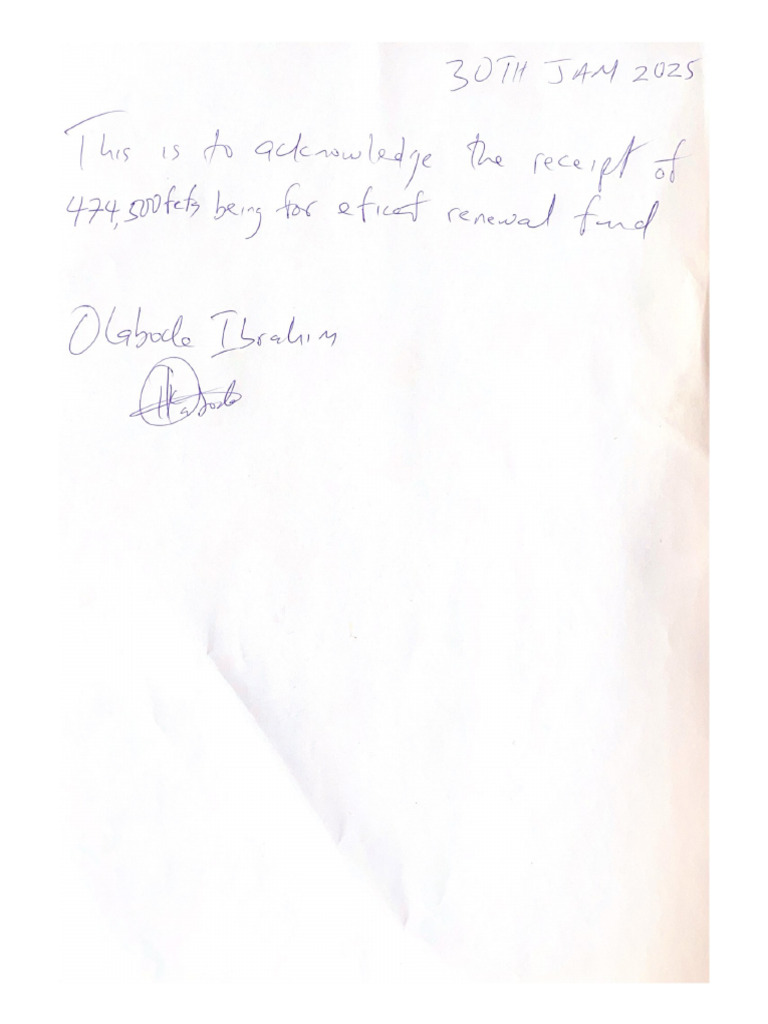 30TH JAN 2025
This is to acknowledge the receipt of
474,500fcfa being for eficet renewal fund
Olabode Ibrahim